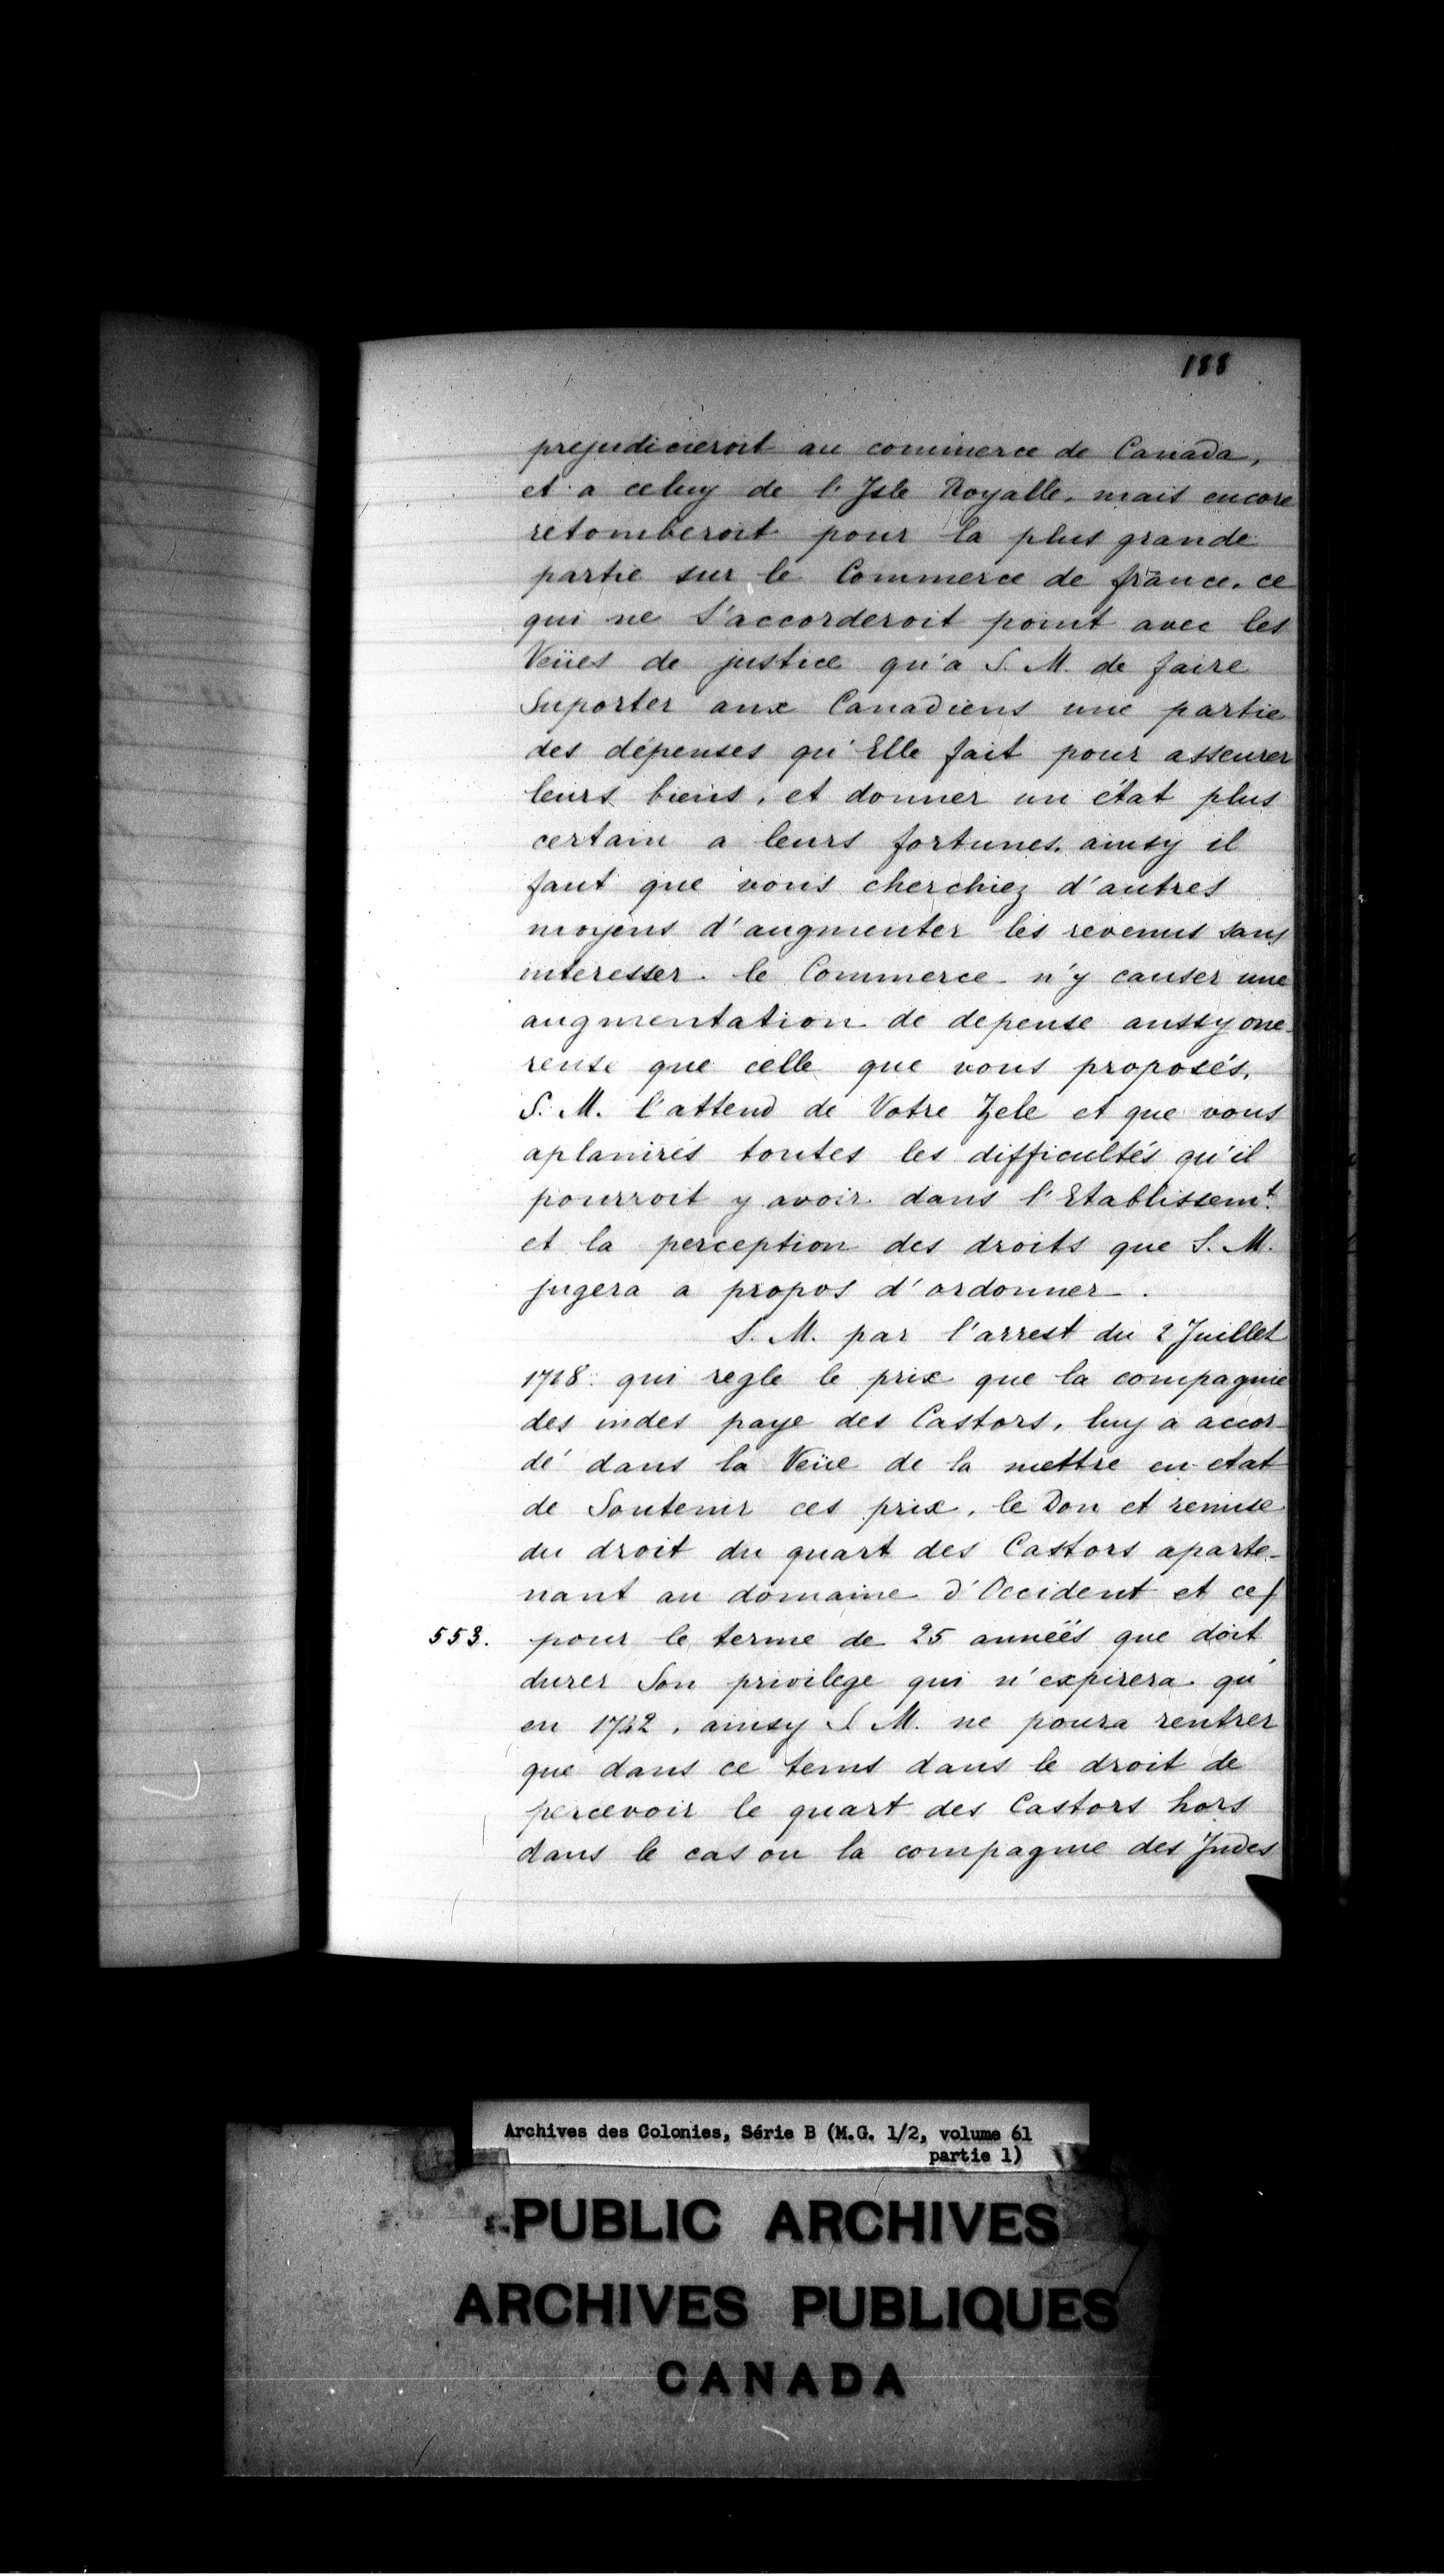 188
prejudicieroit au commerce de Canada,
et a celuy de l'Isle Royalle, mais encore
retomberoit pour la plus grande
partie sur le Commerce de france, ce
qui ne S'accorderoit point avec les
Veües de justice qu'a S. M. de faire
Suporter aux Canadiens une partie
des dépenses qu'Elle fait pour asseurer
leurs biens, et donner un état plus
certain a leurs fortunes, ainsy il
faut que vous cherchiez d'autres
moyens d'augmenter les revenus sans
interesser le Commerce n'y causer une
augmentation de depense aussy one-
reuse que celle que vous proposés,
S. M. l'attend de Votre Zele et que vous
aplanirés toutes les difficultés qu'il
pourroit y avoir dans l'Etablissemt.
et la perception des droits que S. M.
jugera a propos d'ordonner.
S. M. par l'arrest du 2 Juillet
1718. qui regle le prix que la compagnie
des indes paye des Castors, luy a accor-
dé dans la Veüe de la mettre en etat
de Soutenir ces prix, le Don et remise
du droit du quart des Castors aparte-
nant au domaine d'Occident et ce/
553. pour le terme de 25 anneës que doit
durer Son privilege qui n'expirera qu'
en 1742, ainsy S M. ne poura rentrer
que dans ce tems dans le droit de
percevoir le quart des Castors hors
dans le cas ou la compagnie des Indes
Archives des Colonies, Série B (M.G. 1/2, volume 61
partie 1)
PUBLIC ARCHIVES
ARCHIVES PUBLIQUES
CANADA